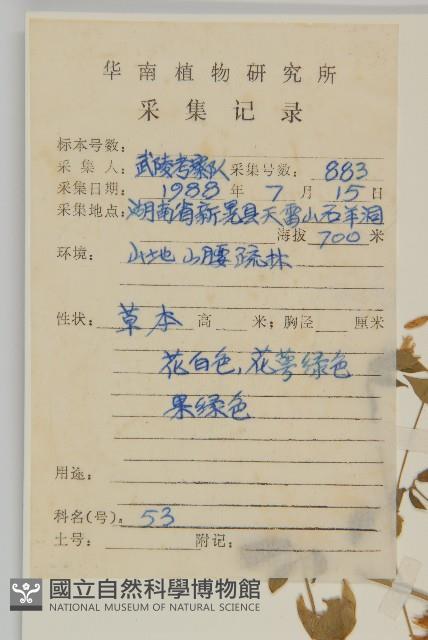 华南植物研究所
采集记录
标本号数：
采集人：武陵考察队 采集号数：883
采集日期：1988 年 7 月 15 日
采集地点：湖南省新晃县天雷山石羊洞
海拔 700 米
环境：山地山腰疏林
性状：草本 高 米；胸径 厘米
花白色，花萼绿色
果绿色
用途：
科名(号)：53
土号： 附记：
國立自然科學博物館
NATIONAL MUSEUM OF NATURAL SCIENCE